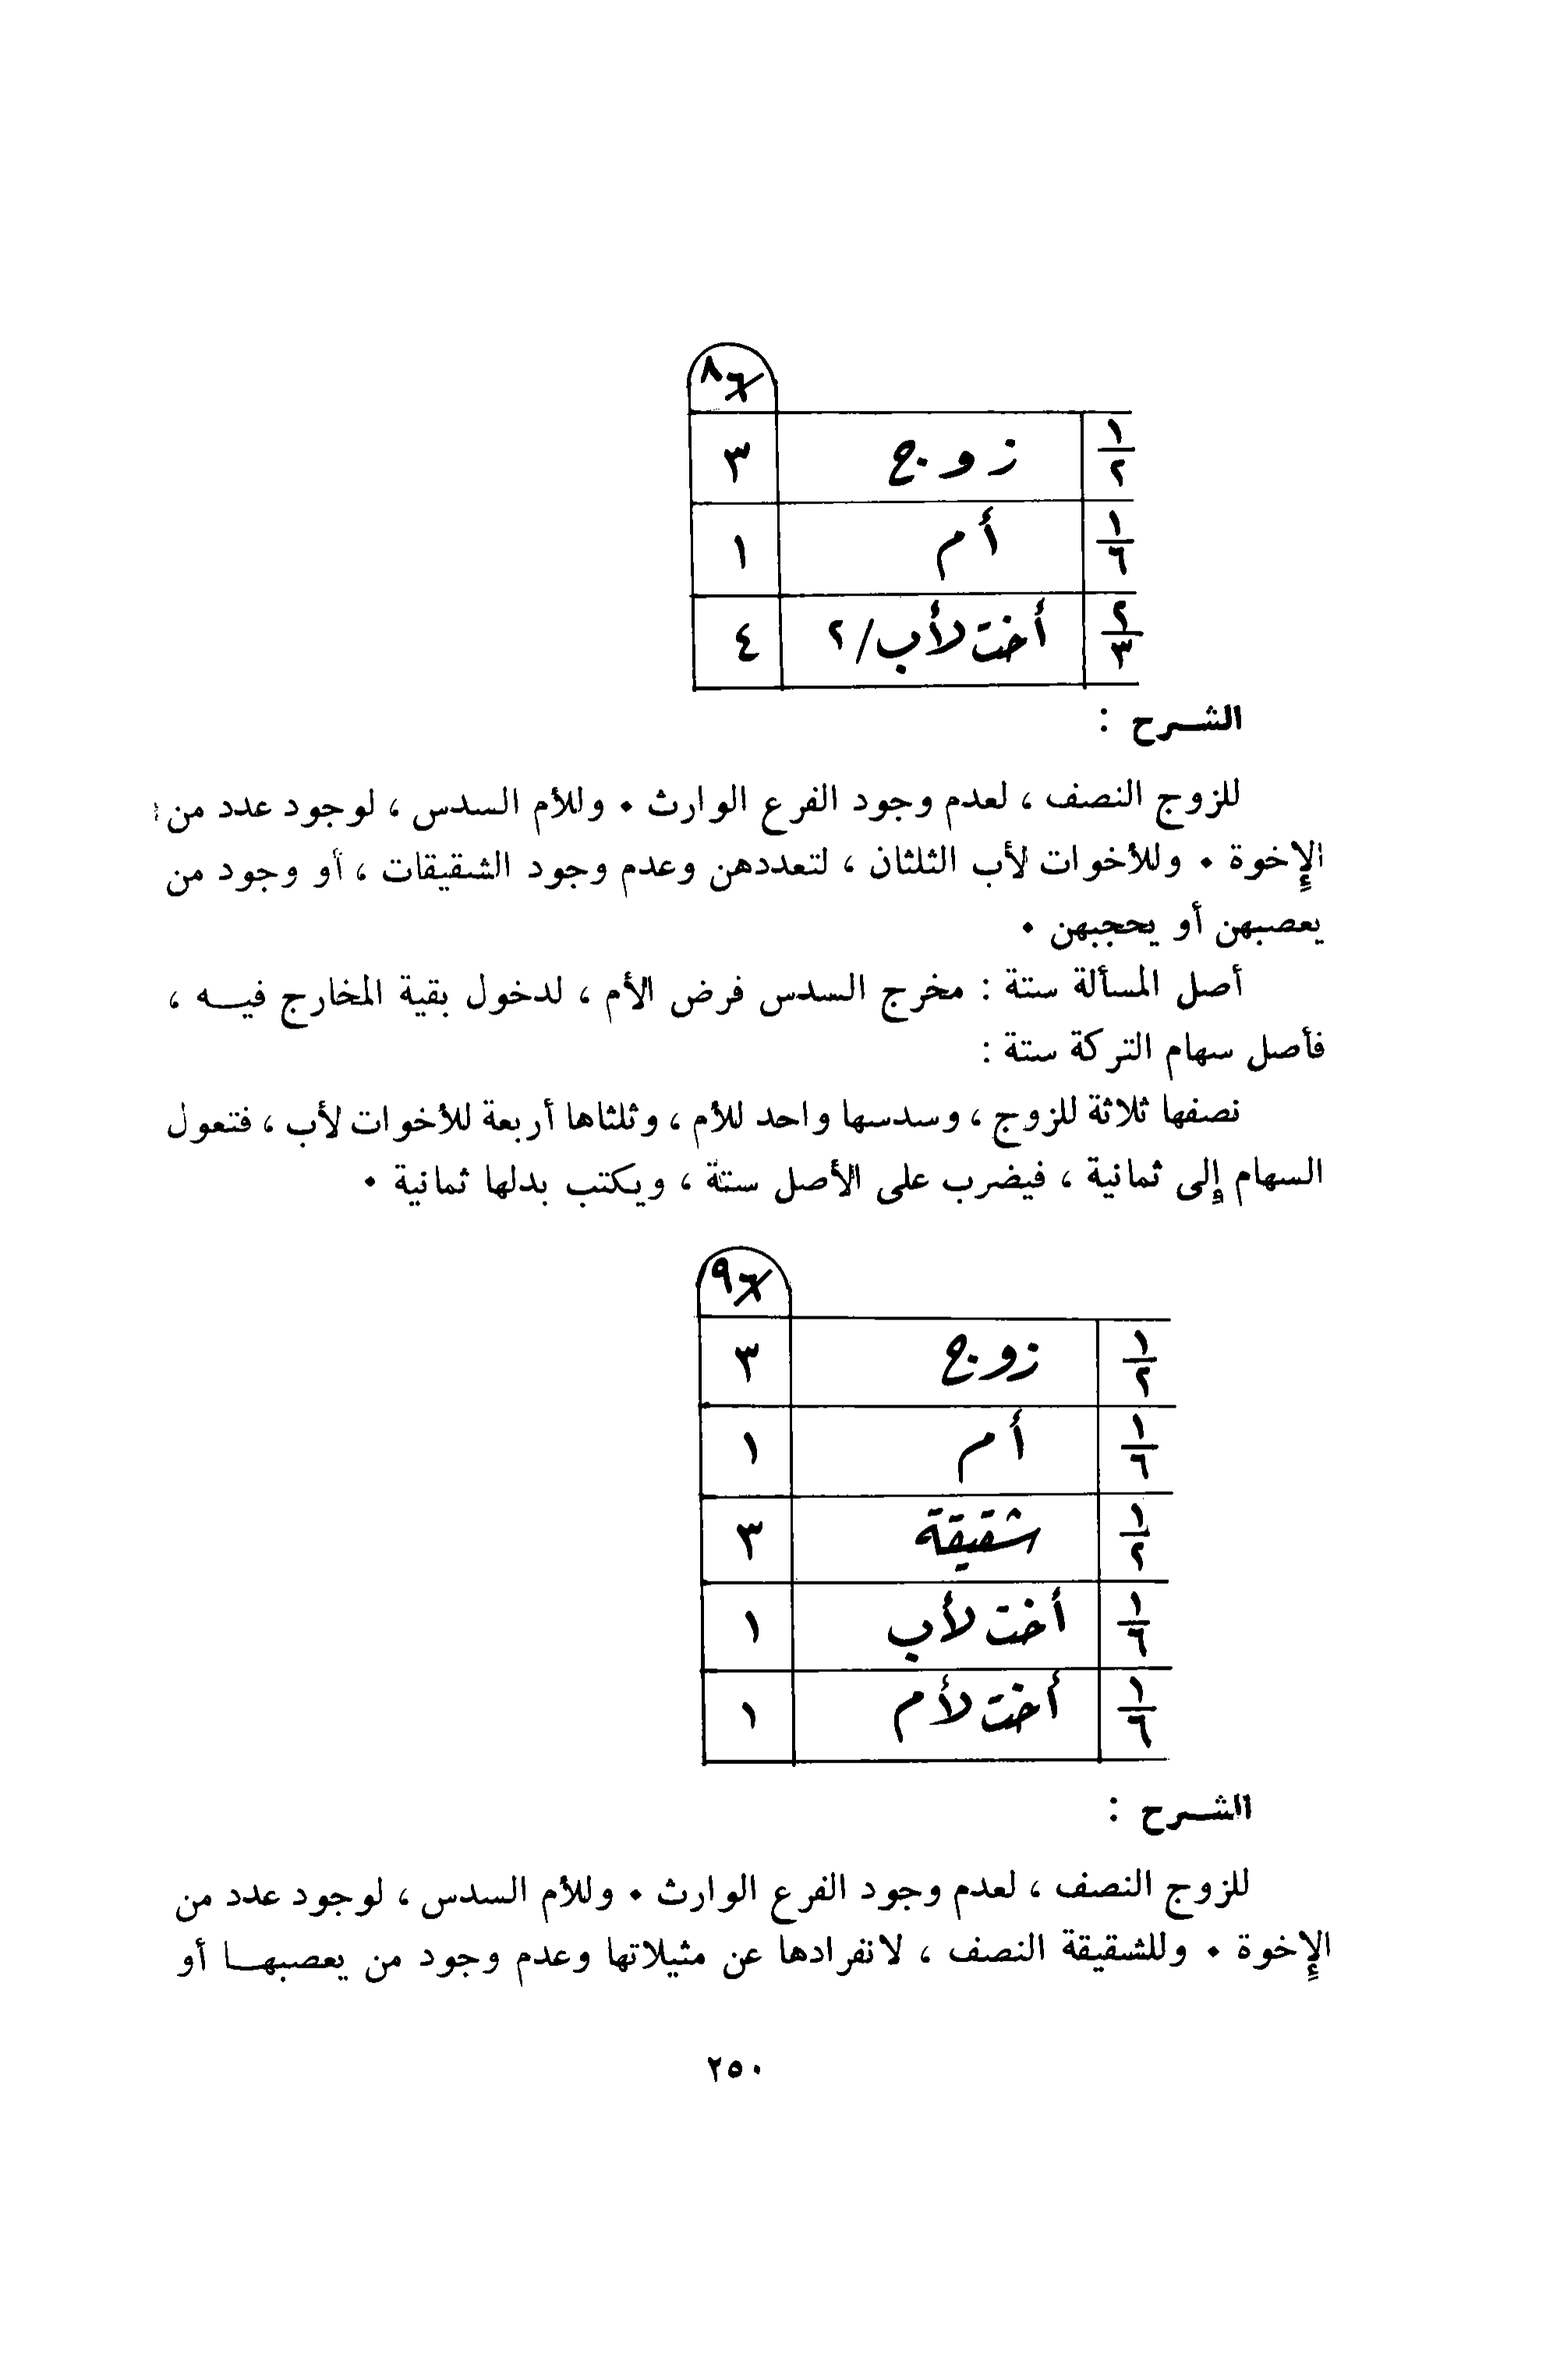 ٨ ٦
١/٢ زوج ٣
١/٦ أم ١
٢/٣ أخت لأب /٢ ٤
الشرح :
للزوج النصف ، لعدم وجود الفرع الوارث • وللأم السدس ، لوجود عدد من
الإخوة • وللأخوات لأب الثلثان ، لتعددهن وعدم وجود الشقيقات ، أو وجود من
يعصبهن أو يحجبهن •
أصل المسألة ستة : مخرج السدس فرض الأم ، لدخول بقية المخارج فيه ،
فأصل سهام التركة ستة :
نصفها ثلاثة للزوج ، وسدسها واحد للأم ، وثلثاها أربعة للأخوات لأب ، فتعول
السهام إلى ثمانية ، فيضرب على الأصل ستة ، ويكتب بدلها ثمانية •
٩ ٦
١/٢ زوج ٣
١/٦ أم ١
١/٢ شقيقة ٣
١/٦ أخت لأب ١
١/٦ أخت لأم ١
الشرح :
للزوج النصف ، لعدم وجود الفرع الوارث • وللأم السدس ، لوجود عدد من
الإخوة • وللشقيقة النصف ، لانفرادها عن مثيلاتها وعدم وجود من يعصبها أو
٢٥٠